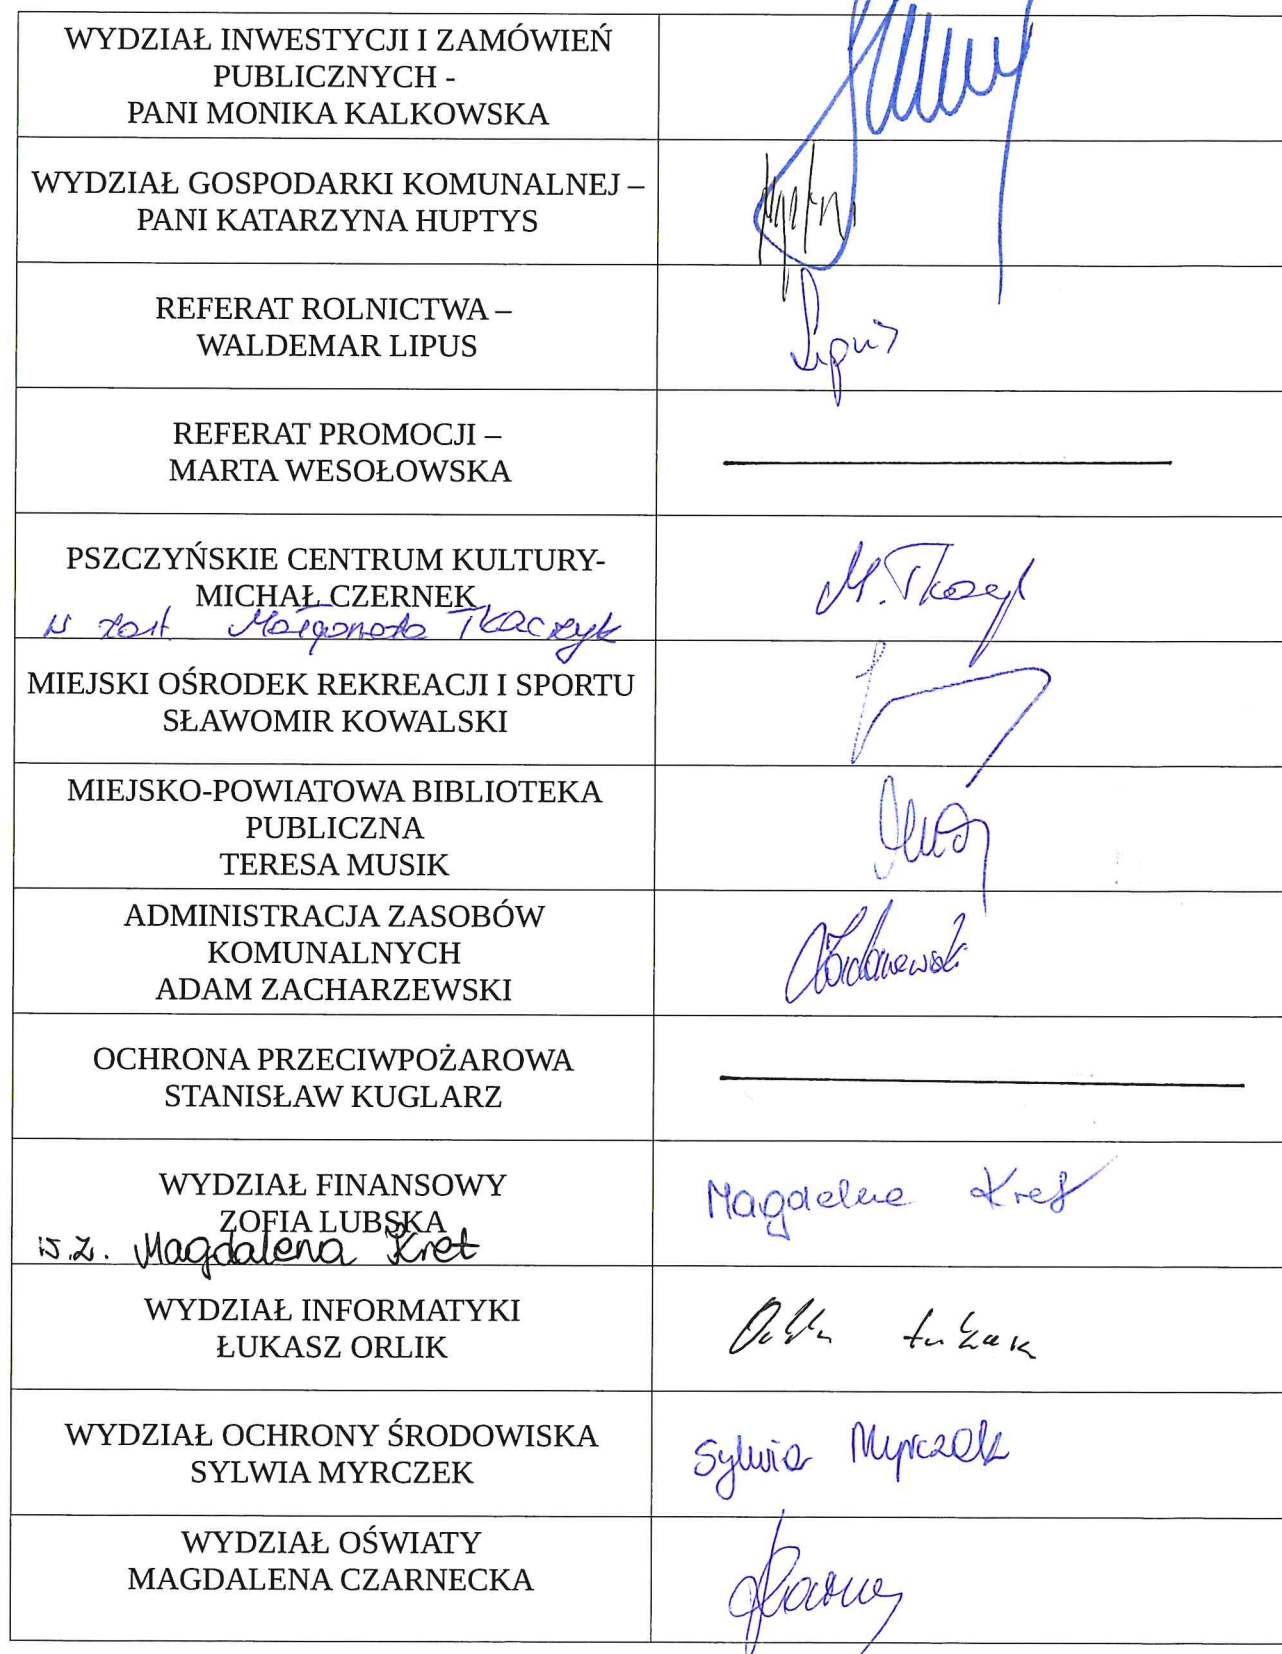 WYDZIAŁ INWESTYCJI I ZAMÓWIEŃ
PUBLICZNYCH -
PANI MONIKA KALKOWSKA
WYDZIAŁ GOSPODARKI KOMUNALNEJ –
PANI KATARZYNA HUPTYS
REFERAT ROLNICTWA –
WALDEMAR LIPUS
Lipus
REFERAT PROMOCJI –
MARTA WESOŁOWSKA
PSZCZYŃSKIE CENTRUM KULTURY-
MICHAŁ CZERNEK
w zast Małgorzata Tkaczyk
M. Tkaczyk
MIEJSKI OŚRODEK REKREACJI I SPORTU
SŁAWOMIR KOWALSKI
MIEJSKO-POWIATOWA BIBLIOTEKA
PUBLICZNA
TERESA MUSIK
ADMINISTRACJA ZASOBÓW
KOMUNALNYCH
ADAM ZACHARZEWSKI
OCHRONA PRZECIWPOŻAROWA
STANISŁAW KUGLARZ
WYDZIAŁ FINANSOWY
ZOFIA LUBSKA
w.z. Magdalena Kret
Magdalena Kret
WYDZIAŁ INFORMATYKI
ŁUKASZ ORLIK
WYDZIAŁ OCHRONY ŚRODOWISKA
SYLWIA MYRCZEK
Sylwia Myrczek
WYDZIAŁ OŚWIATY
MAGDALENA CZARNECKA